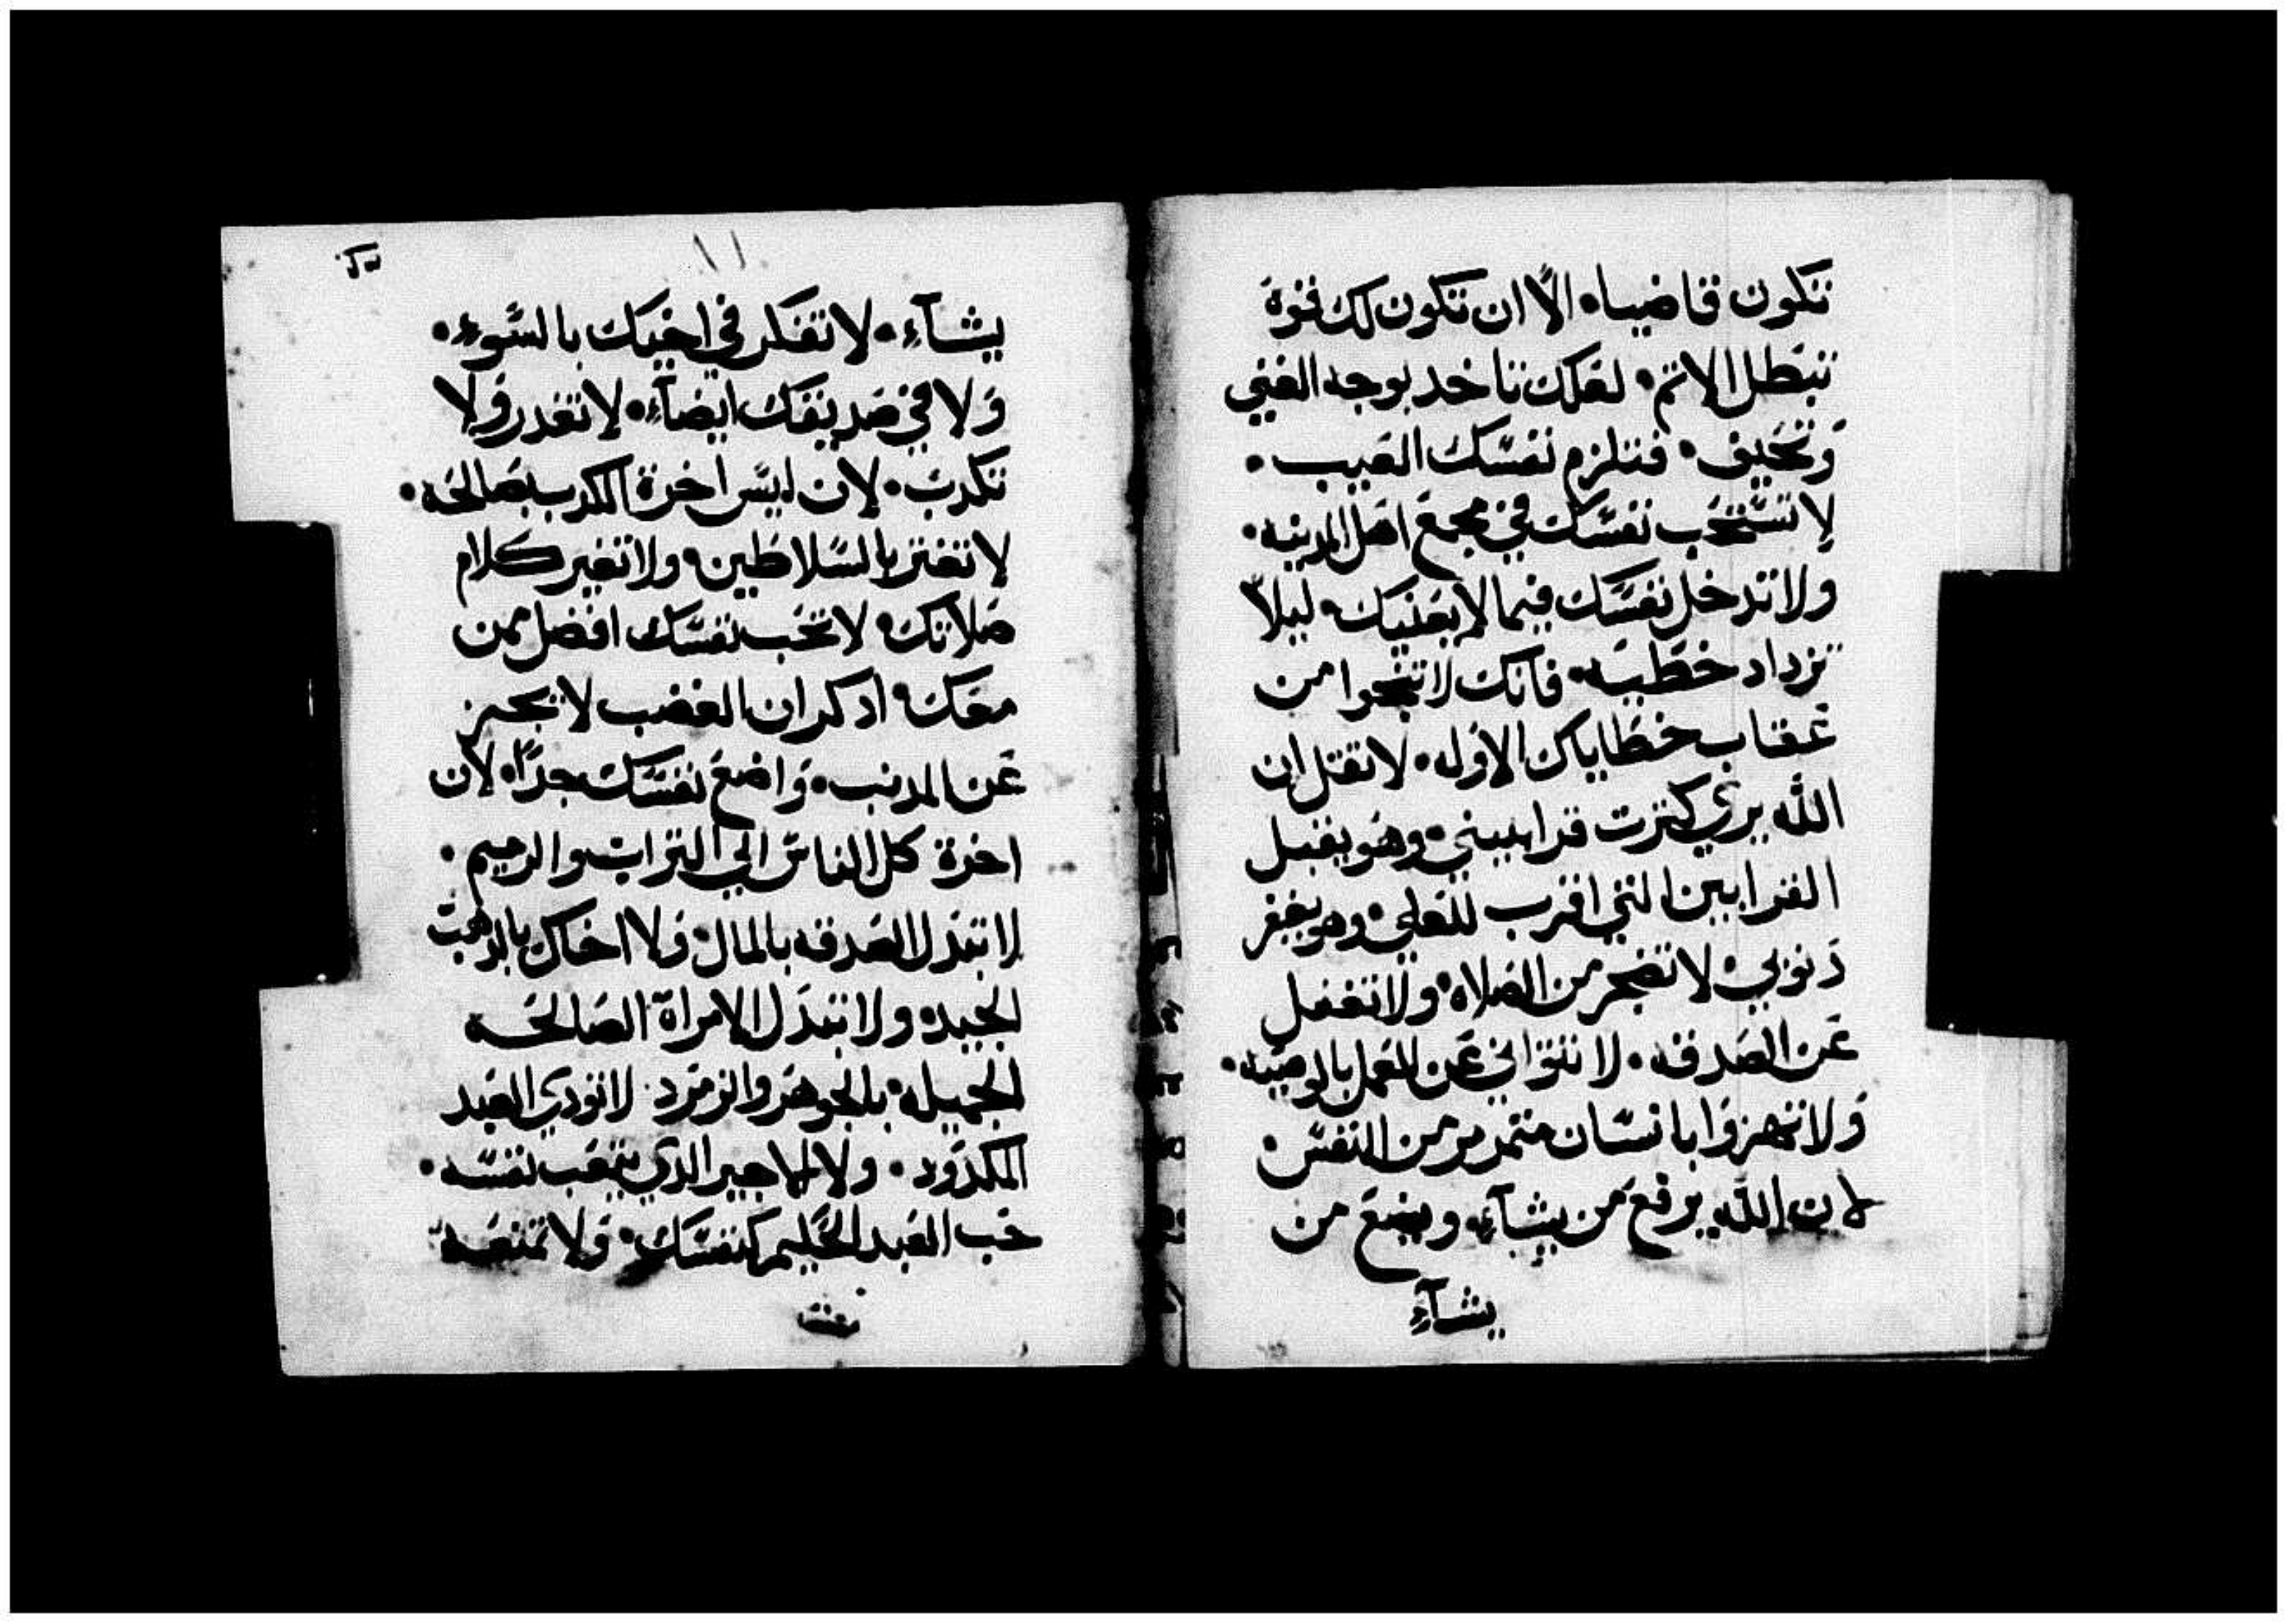 تكون قاضيا • الّا ان تكون لك قوة
تبطل الاثم • لعلك تاخد بوجه الغني
وتحيف • فتلزم نفسك العيب •
لا تستحب نفسك في مجمع اهل المدينه •
ولا تدخل نفسك فيما لا يعنيك • ليلا
تزداد خطيه • فانك لا تنجوا من
عقاب خطاياك الاوله • لا تقل ان
الله يري كثرت قرابيني • وهو يقبل
القرابين التي اقرب للعلي • وهو يغفر
دنوبي • لا تضجر من الصلاه • ولا تغفل
عن الصدقه • لا تتواني عن العمل بالوصيه •
ولا تهزوا بانسان متمرمر من النفس •
لان الله يرفع من يشآء • ويضع من
يشآء
١١
يشآء • لا تفكر في اخيك بالسوء •
ولا في صديقك ايضآء • لا تغدر ولا
تكدب • لان ليس اخرة الكدب بصالحه •
لا تغتر بالسلاطين • ولا تغير كلام
صلاتك • لا تحب نفسك افضل ممن
معك • ادكر ان الغضب لا يجيز
عن المدنب • واضع نفسك جدًا • لان
اخرة كل الناس الي التراب والرميم •
لا تبدل الصدقه بالمال • ولا اخاك بالدهب
الجيد • ولا تبدل الامراة الصالحه
الجميله • بالجوهر والزمرد • لا تودي العبد
المكدود • ولا الاجير الدي يتعب نفسه •
حب العبد الحكيم كنفسك • ولا تمنعه